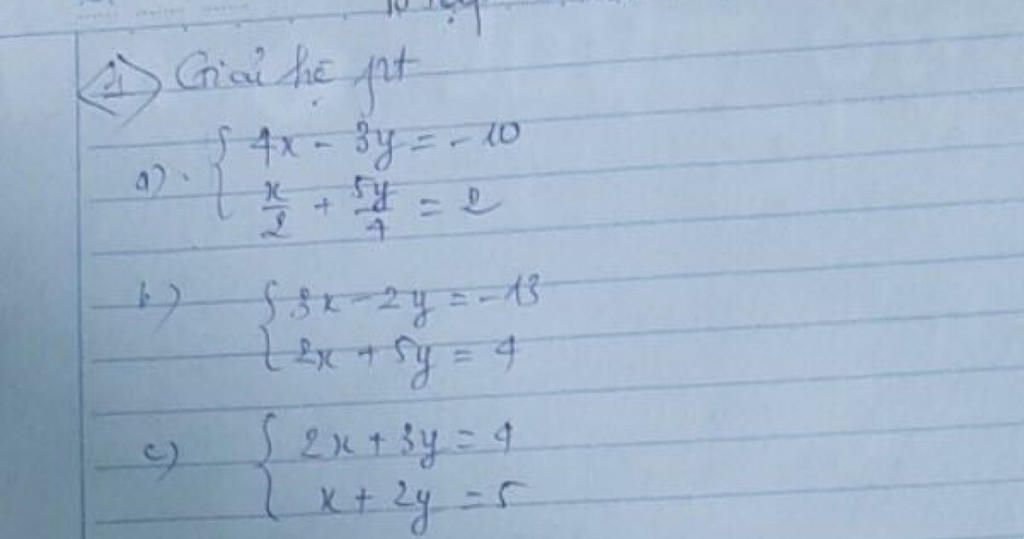 1 Giải hệ pt
a) { 4x - 3y = -10
x/2 + 5y/4 = 2
b) { 3x - 2y = -13
2x + 5y = 4
c) { 2x + 3y = 4
x + 2y = 5